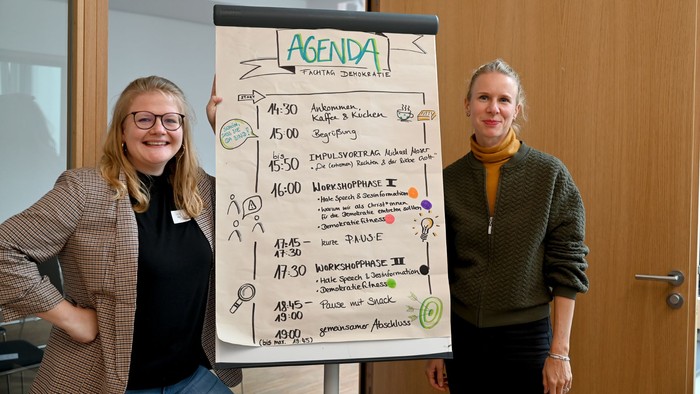 AGENDA
FACHTAG DEMOKRATIE
START
14:30 Ankommen,
Kaffee & Kuchen
15:00 Begrüßung
bis
15:50 IMPULSVORTRAG Michael Moser
"Die (extremen) Rechten & der liebe Gott"
16:00 WORKSHOPPHASE I
• Hate Speech & Desinformation
• Warum wir als Christ*innen
für die Demokratie eintreten sollten
• Demokratiefitness
17:15 – kurze PAUSE
17:30
17:30 WORKSHOPPHASE II
• Hate Speech & Desinformation
• Demokratiefitness
18:45 – Pause mit Snack
19:00
19:00 gemeinsamer Abschluss
(bis max. 19:45)